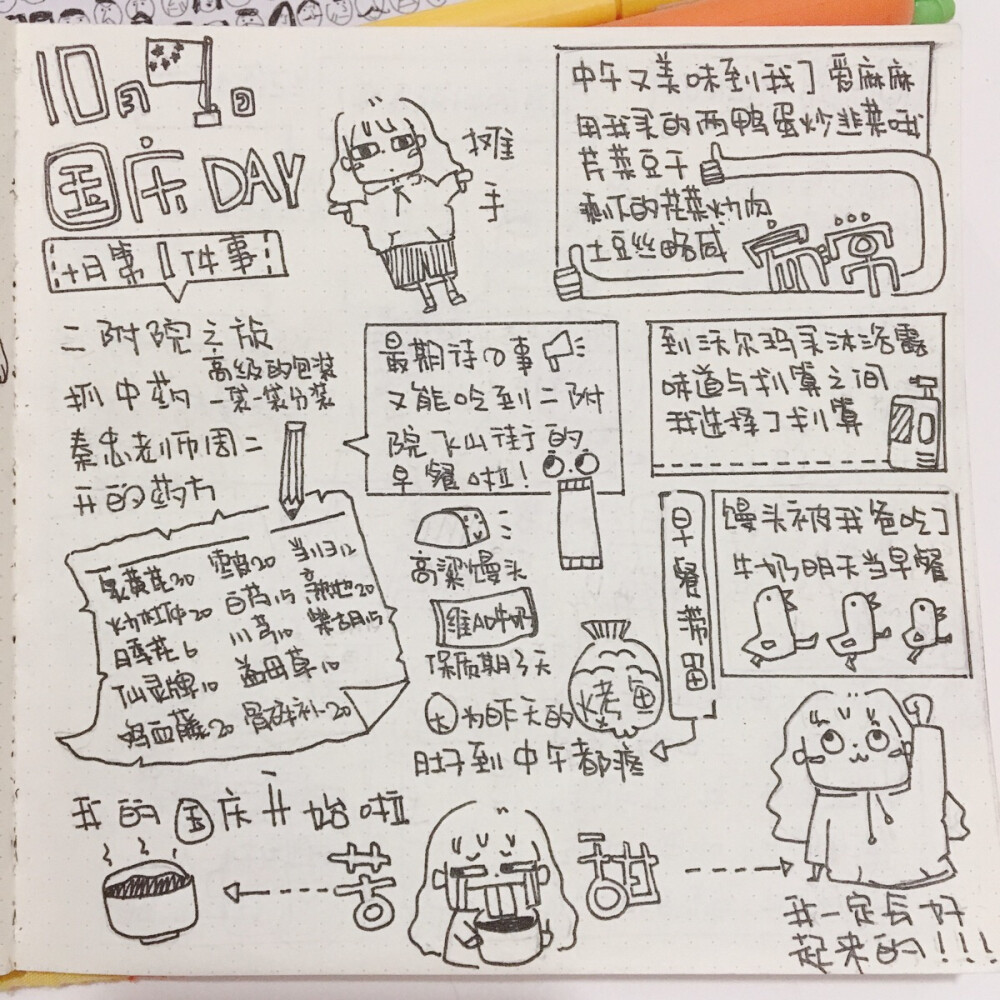 10月1日
国庆DAY
摊
手
十日第1件事
二附院之旅
抓中药
高级的包装
一袋一袋分装
秦忠老师周二
开的药方
炙黄芪30
当归12
炒杜仲20
白芍15
熟地20
月季花6
川芎10
柴胡15
仙灵脾10
益母草10
鸡血藤20
骨碎补20
最期待の事
又能吃到二附
院飞山街的
早餐啦!
高粱馒头
维AD牛奶
保质期3天
因为昨天的
烤鱼
肚子到中午都疼
中午又美味到我了爱麻麻
用我买的两鸭蛋炒韭菜哦
芹菜豆干
剩下的花菜炒肉
土豆丝略咸
家常
到沃尔玛买沐浴露
味道与划算之间
我选择了划算
早餐带回
馒头被我爸吃了
牛奶明天当早餐
我的国庆开始啦
苦
甜
我一定会好
起来的!!!